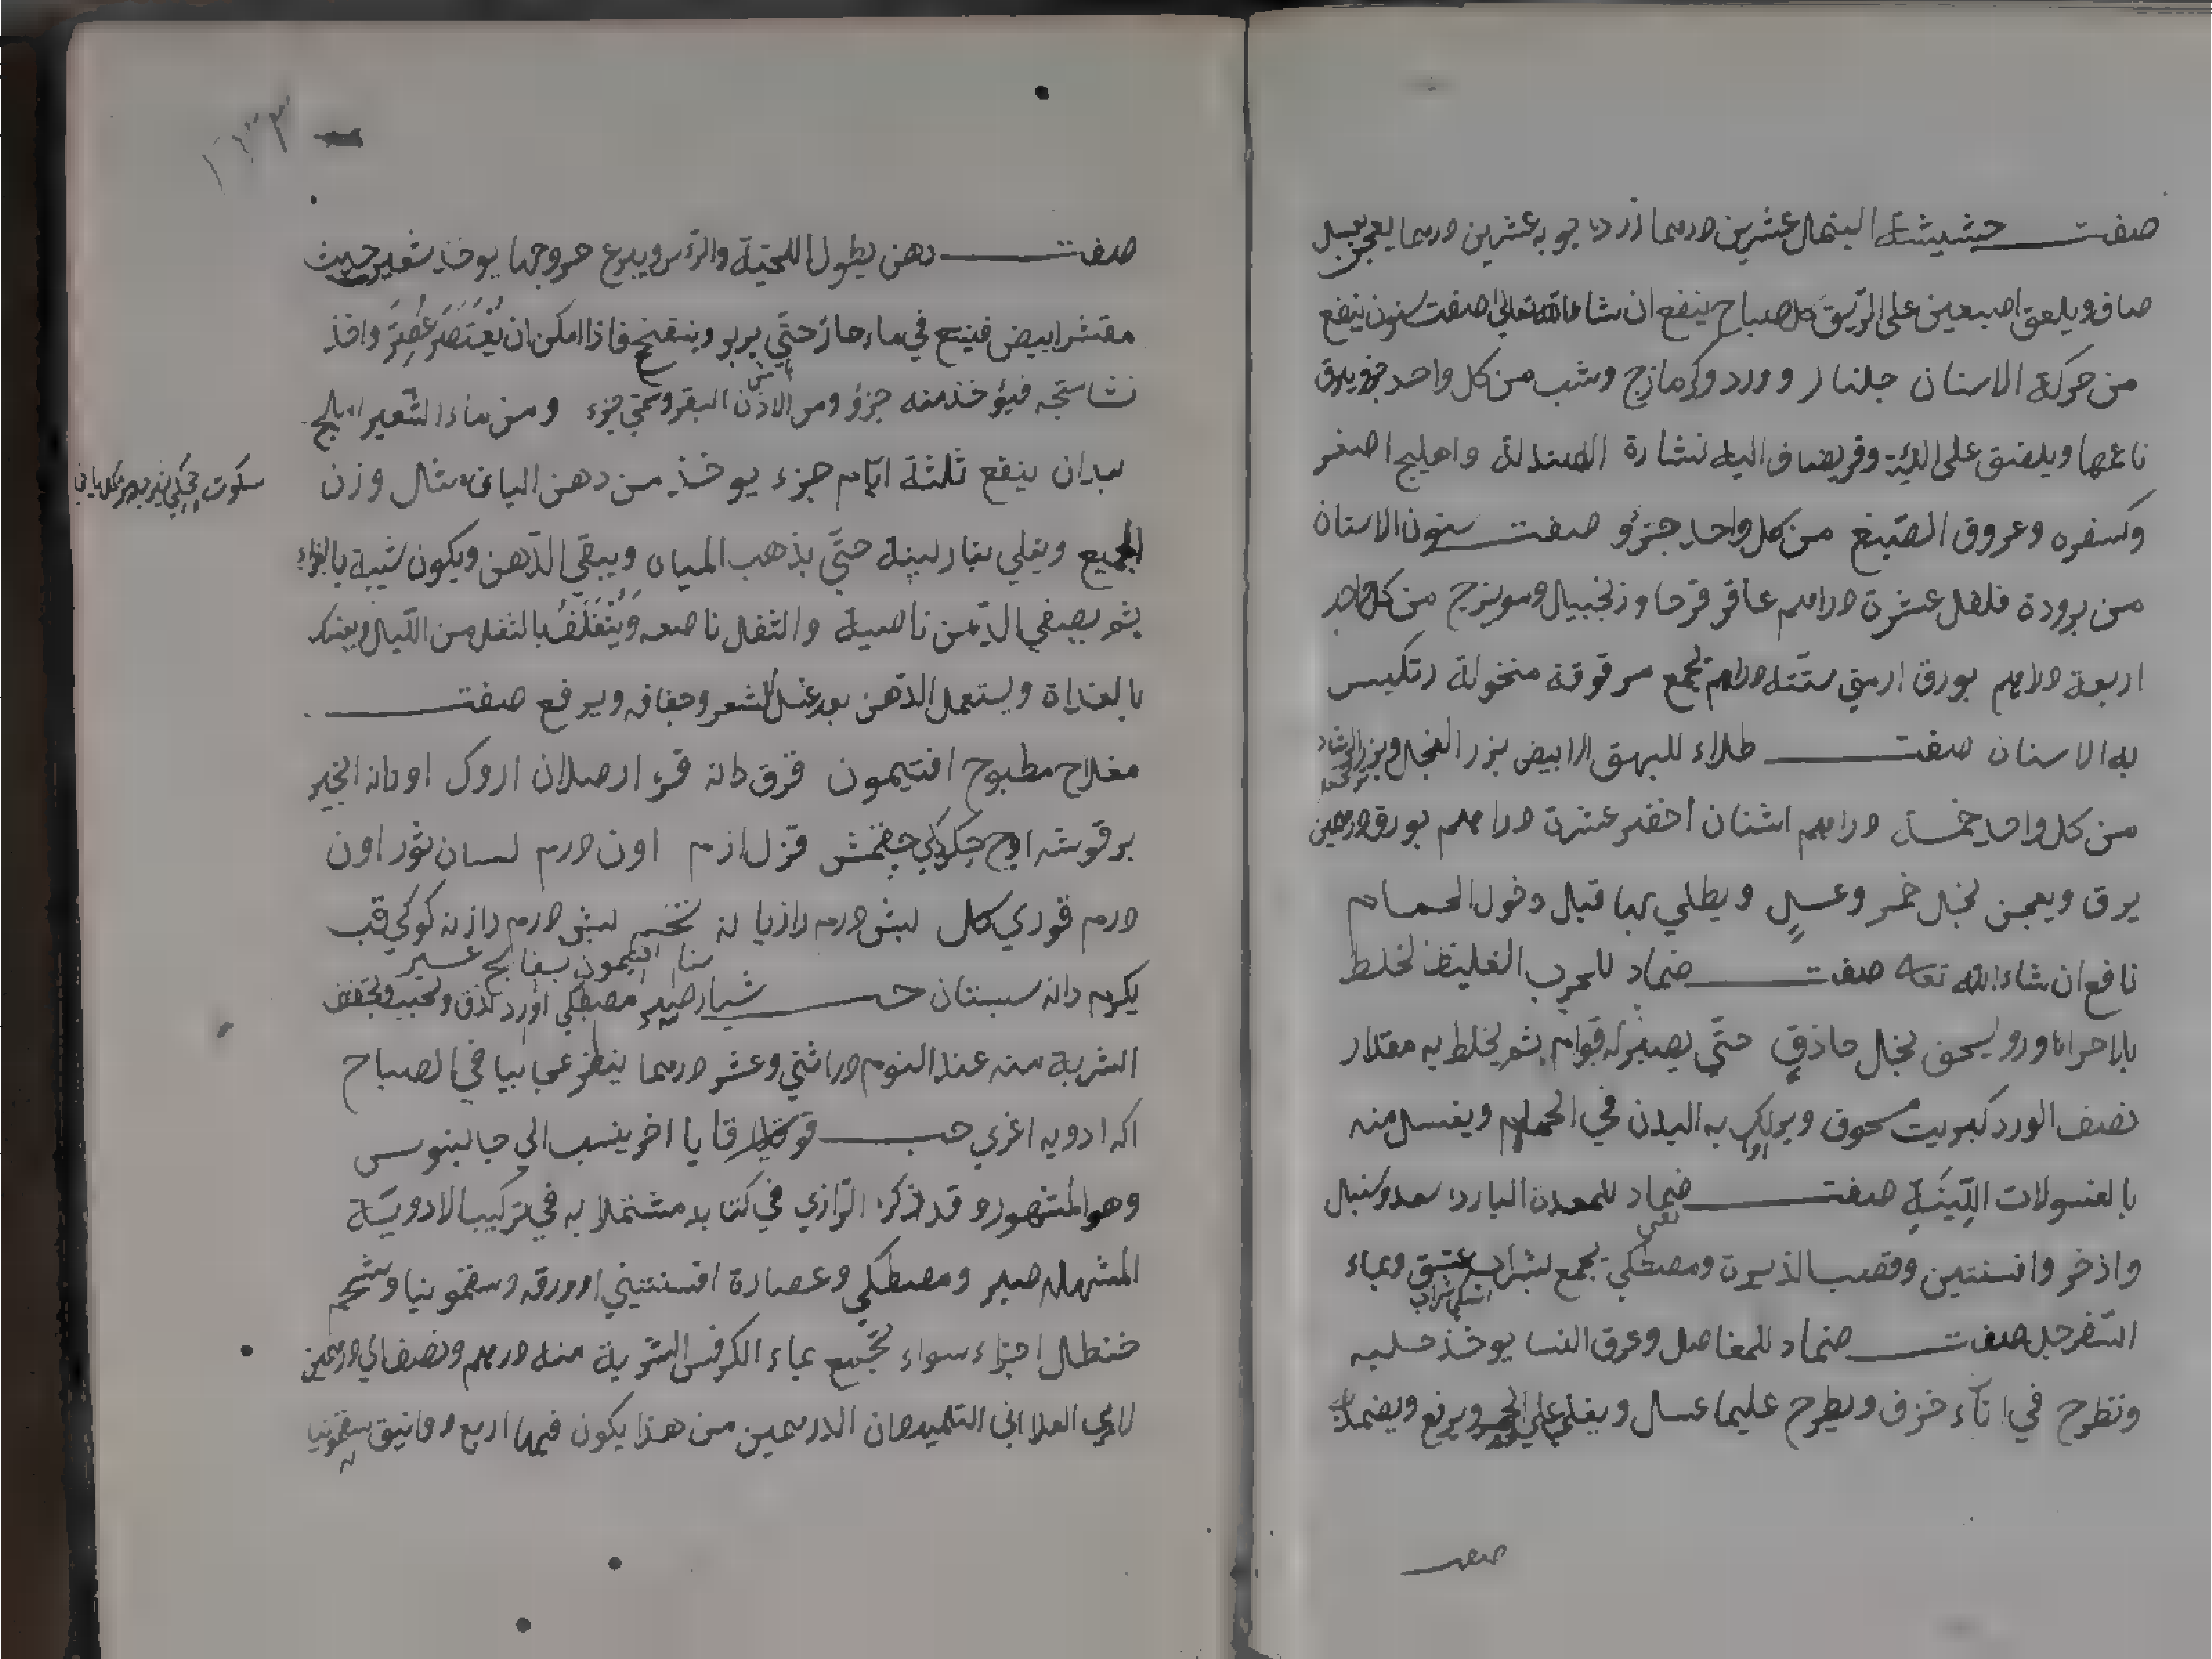 صفت حشيشة السعال عشرين درهما زرد جوبه عشرين درهما يعجن بعسل
صاف ويلعق اصبعين على الريق كل صباح ينفع ان شا الله تعالى صفت سنون ينفع
من حركة الاسنان جلنار وورد وكزمازج وشب من كل واحد جزو يدق
ناعما ويلصق على اللثة وقد يضاف اليه نشارة الصندل واهليج اصفر
وكسفره وعروق الصبغ من كل واحد جزؤ صفت سنون الاسنان
من برودة فلفل عشرة دراهم عاقر قرحا وزنجبيل وميويزج من كل واحد
اربعة دراهم بورق ارمني ستة دراهم تجمع مدقوقة منخولة وتكبس
به الاسنان صفت طلاء للبهق الابيض بزر الفجل وبزر الرشاد
من كل واحد خمسة دراهم اشنان اخضر عشرة دراهم بورق درهمين
يدق ويعجن بخل خمر وعسل ويطلي بها قبل دخول الحمام
نافع ان شاء الله تعالى صفت ضماد للجرب الغليظ لخلط
ورد يسحق بخل حاذق حتى يصير له قوام ثم يخلط به مقدار
نصف الورد كبريت مسحوق ويدلك به البدن في الحمام ويغسل منه
بالغسولات اللينة صفت ضماد للمعدة البارده سعد وسنبل
واذخر وافسنتين وقصب الذريرة ومصطكي تجمع بشراب عتيق وبماء
اسكي شراب
السفرجل صفت ضماد للمفاصل وعرق النسا يوخذ حلبه
وتطرح في اناء خزف ويطرح عليها عسل ويغلي على الجمر ويرفع ويضمد به
صفت
١٧٣
صفت دهن يطول اللحية والراس ويسرع خروجها يوخذ شعير حديث
مقشر ابيض فينقع في ماء حار حتى يربو وينتفخ فاذا امكن ان يعتصر عصر واخذ
نشاستجه فيؤخذ منه جزؤ ومن البقر جزء ومن ماء الشعير املج
بعد ان ينقع ثلثة ايام جزء يوخذ من دهن البان مثال وزن
سكوت
الجميع ويغلي بنار لينه حتى يذهب المياه ويبقي الدهن ويكون شبيه بالغراء
ثم يصفي الدهن ناصيه والثفل ناصعه ويتغلف بالثفل من الليل ويغسل
بالغداة ويستعمل الدهن بعد غسل الشعر وجفافه ويرفع صفت
مغلاح مطبوخ افتيمون قرق دانه قره ارصلان اروك اون دانه انجير
بر قوشه اوج جكردكي چقمش قزل ازم اون درم لسان ثور اون
درم قوري كل بش درم رازيانه تخمي بش درم رازيانه كوكي قب
سنا افتيمون بسفايج
يكرم دانه سبستان حب شبيار صبر مصطكي اورد تدق وتحبب وتجفف
الشربة منه عند النوم دراثني وعشر درهما ينظر عجايبا في الصباح
اكه ادويه اغري حب قوقايا اخر ينسب الي جالينوس
وهو المشهور وقد ذكره الرازي في كتابه مشتملا به في تركيب الادوية
المسهله صبر ومصطكي وعصارة افسنتيني او ورقه وسقمونيا وشحم
حنظل اجزاء سواء تجمع بماء الكرفس الشربة منه درهم ونصف الي درهمين
لابي العلا ابي التلميذ وان الدرهمين من هذا يكون فيها اربع دوانيق سقمونيا